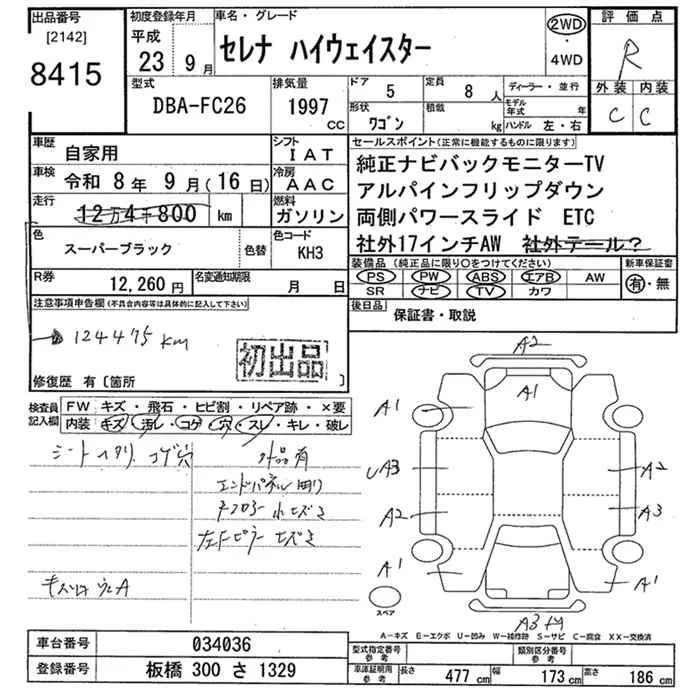 出品番号
[2142]
8415
初度登録年月
平成
23 9月
車名・グレード
セレナ ハイウェイスター
2WD
・
4WD
評価点
R
外装 内装
C C
型式
DBA-FC26
排気量
1997
CC
ドア
5
定員
8 人
形状
ワゴン
積載
kg
ディーラー・並行
モデル年式 年
ハンドル 左・右
車歴
自家用
シフト
IAT
車検
令和 8年 9月(16日)
冷房
AAC
走行
12万4千800 km
燃料
ガソリン
色
スーパーブラック
色替
色コード
KH3
R券
12,260円
名変通知期限
月 日
セールスポイント(正常に機能するものに限ります)
純正ナビバックモニターTV
アルパインフリップダウン
両側パワースライド ETC
社外17インチAW 社外テール?
装備品(純正品に限り○をつけてください)
PS PW ABS エアB AW
SR ナビ TV カワ
新車保証書
有・無
後日品
保証書・取説
注意事項申告欄(不具合内容等は具体的に記入して下さい)
124475 km
初出品
修復歴 有〔箇所
検査員記入欄
FW キズ・飛石・ヒビ割・リペア跡・×要
内装 キズ・汚レ・コゲ・穴・スレ・キレ・破レ
シートヘタリ コゲ穴
外品有
エンドパネル 曲り
Rフロアー 小キズき
左Fピラー キズき
A2
A1
A1
A3
A2
A2
A3
A1
A1
A3
スペア
A-キズ E-エクボ U-凹み W-補修跡 S-サビ C-腐食 XX-交換済
車台番号
034036
登録番号
板橋 300 さ 1329
型式指定番号
参考
類別区分番号
参考
車庫証明用
参考
長さ 477 cm 幅 173 cm 高さ 186 cm